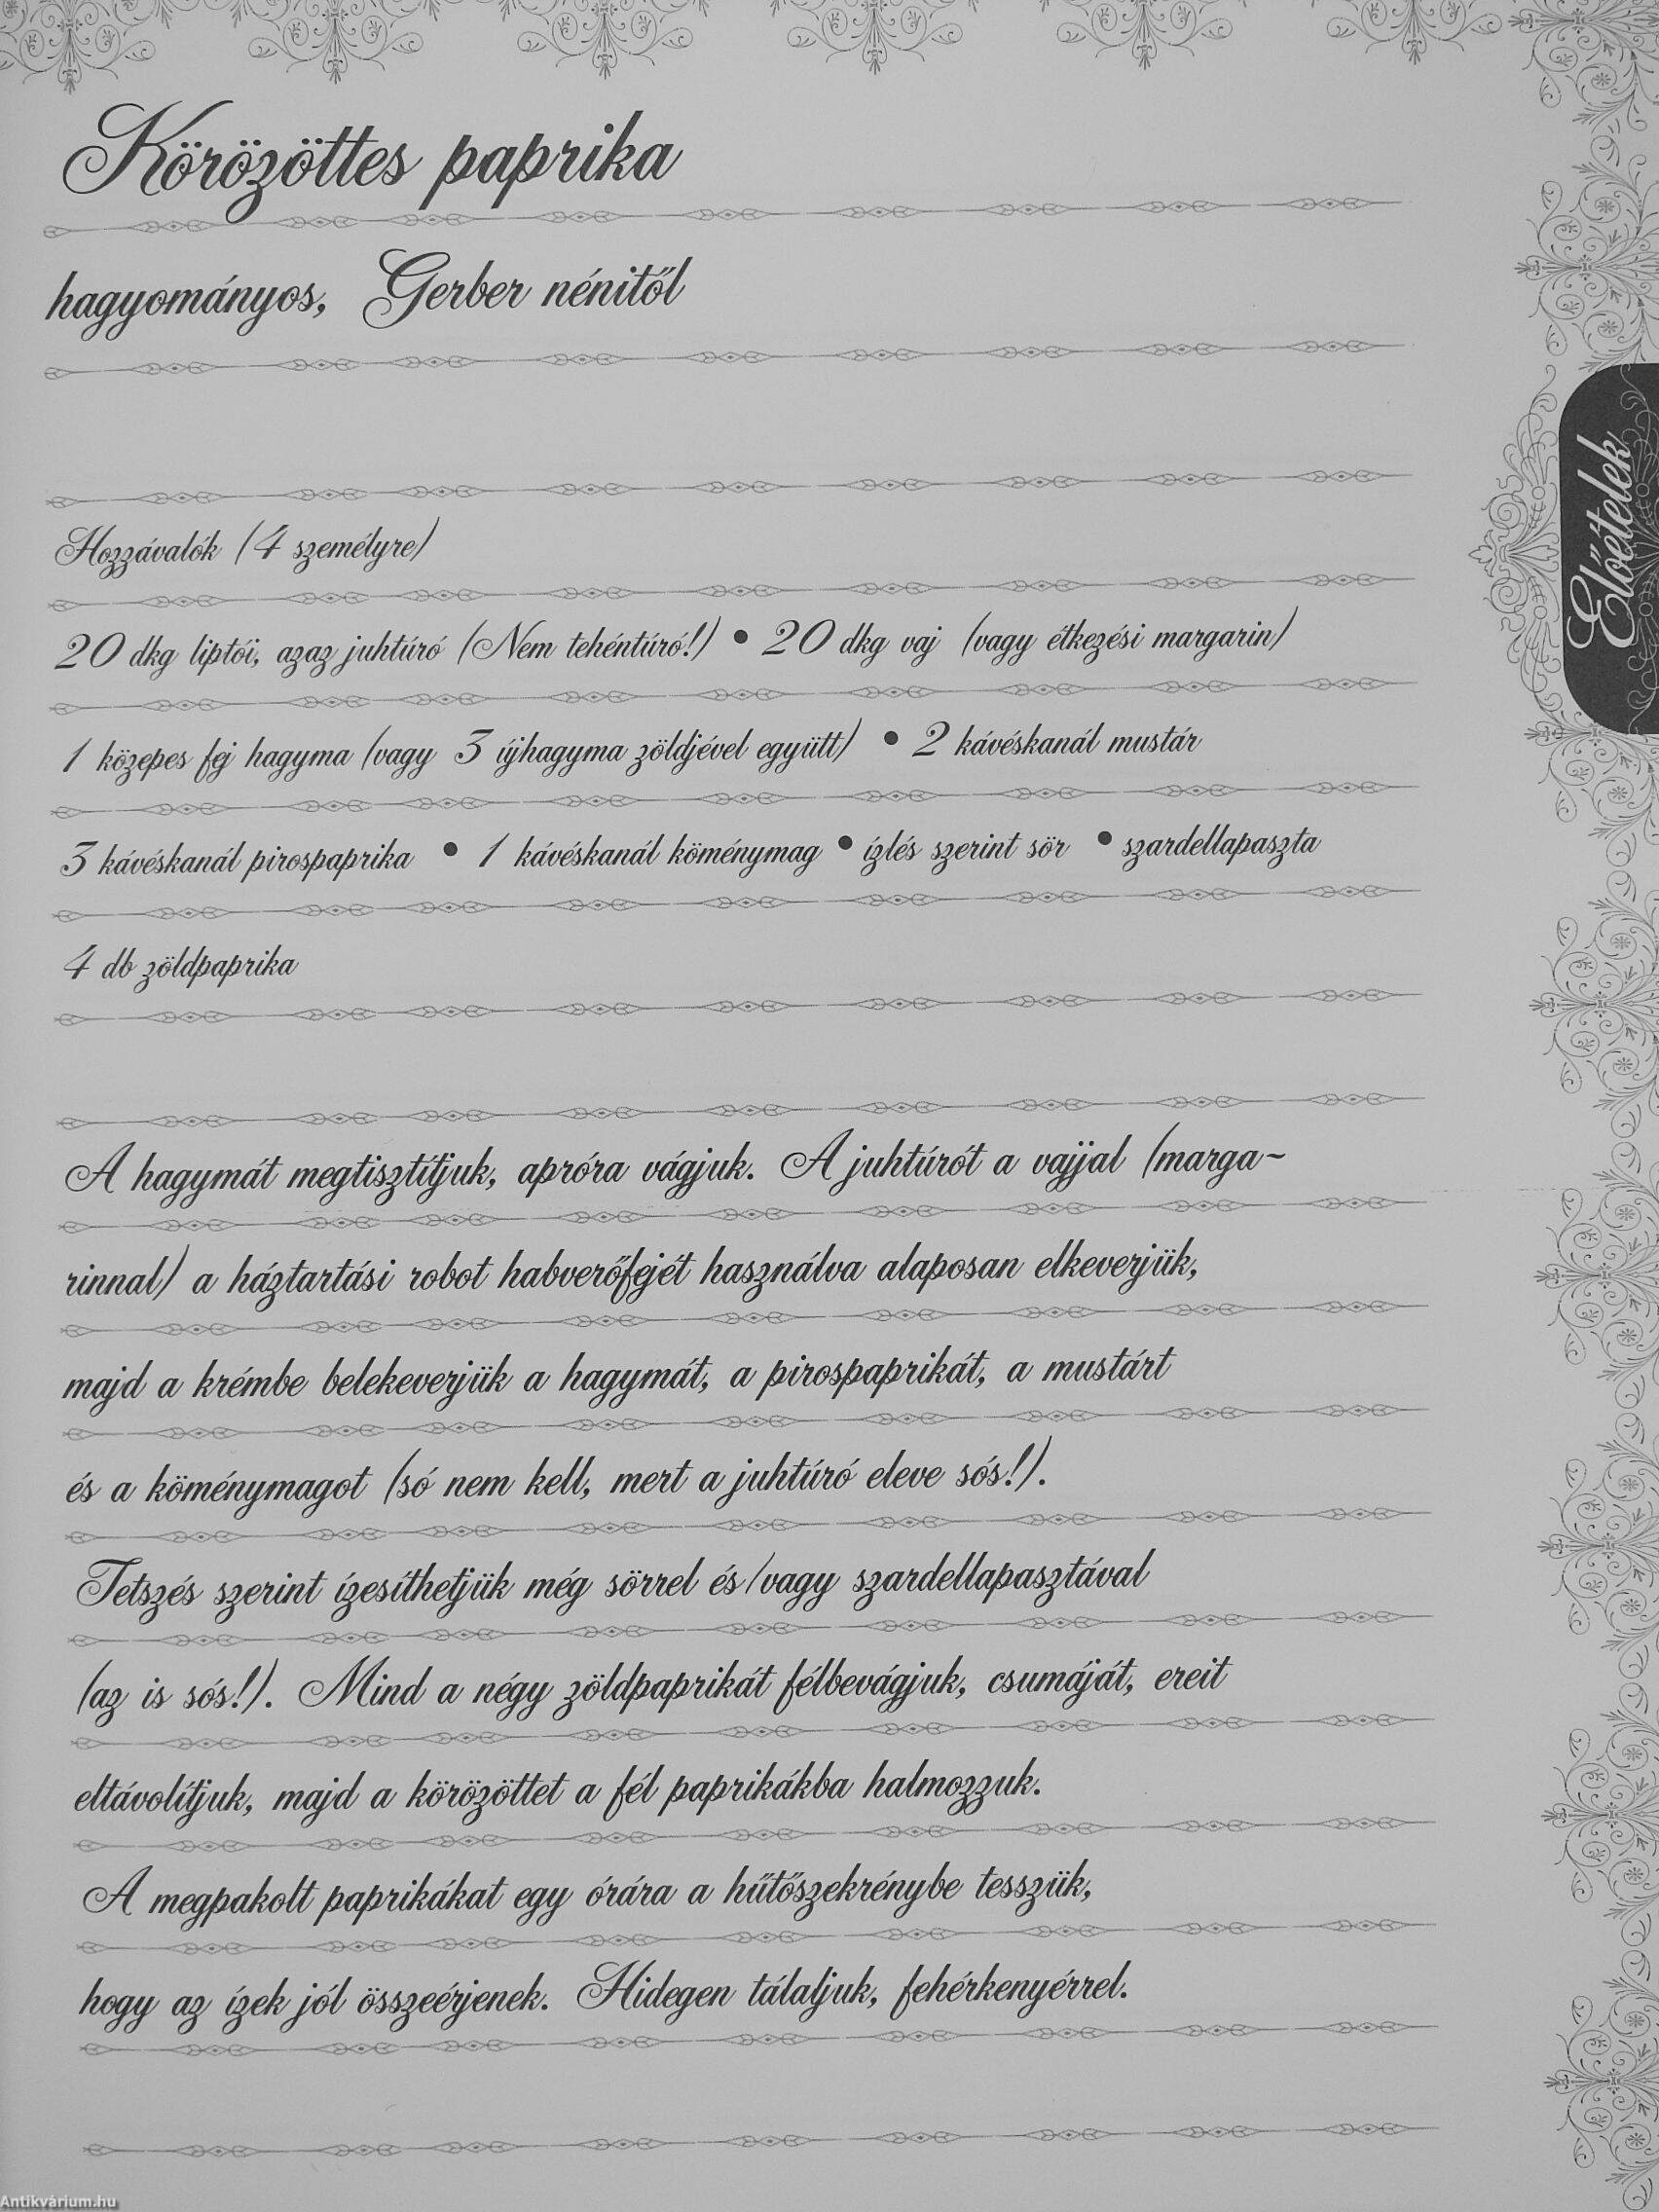 Körözöttes paprika
hagyományos, Gerber nénitől
Előételek
Hozzávalók (4 személyre)
20 dkg liptói, azaz juhtúró (Nem tehéntúró!) • 20 dkg vaj (vagy étkezési margarin)
1 közepes fej hagyma (vagy 3 újhagyma zöldjével együtt) • 2 kávéskanál mustár
3 kávéskanál pirospaprika • 1 kávéskanál köménymag • ízlés szerint sör • szardellapaszta
4 db zöldpaprika
A hagymát megtisztítjuk, apróra vágjuk. A juhtúrót a vajjal (marga-
rinnal) a háztartási robot habverőfejét használva alaposan elkeverjük,
majd a krémbe belekeverjük a hagymát, a pirospaprikát, a mustárt
és a köménymagot (só nem kell, mert a juhtúró eleve sós!).
Tetszés szerint ízesíthetjük még sörrel és/vagy szardellapasztával
(az is sós!). Mind a négy zöldpaprikát félbevágjuk, csumáját, ereit
eltávolítjuk, majd a körözöttet a fél paprikákba halmozzuk.
A megpakolt paprikákat egy órára a hűtőszekrénybe tesszük,
hogy az ízek jól összeérjenek. Hidegen tálaljuk, fehérkenyérrel.
Antikvárium.hu